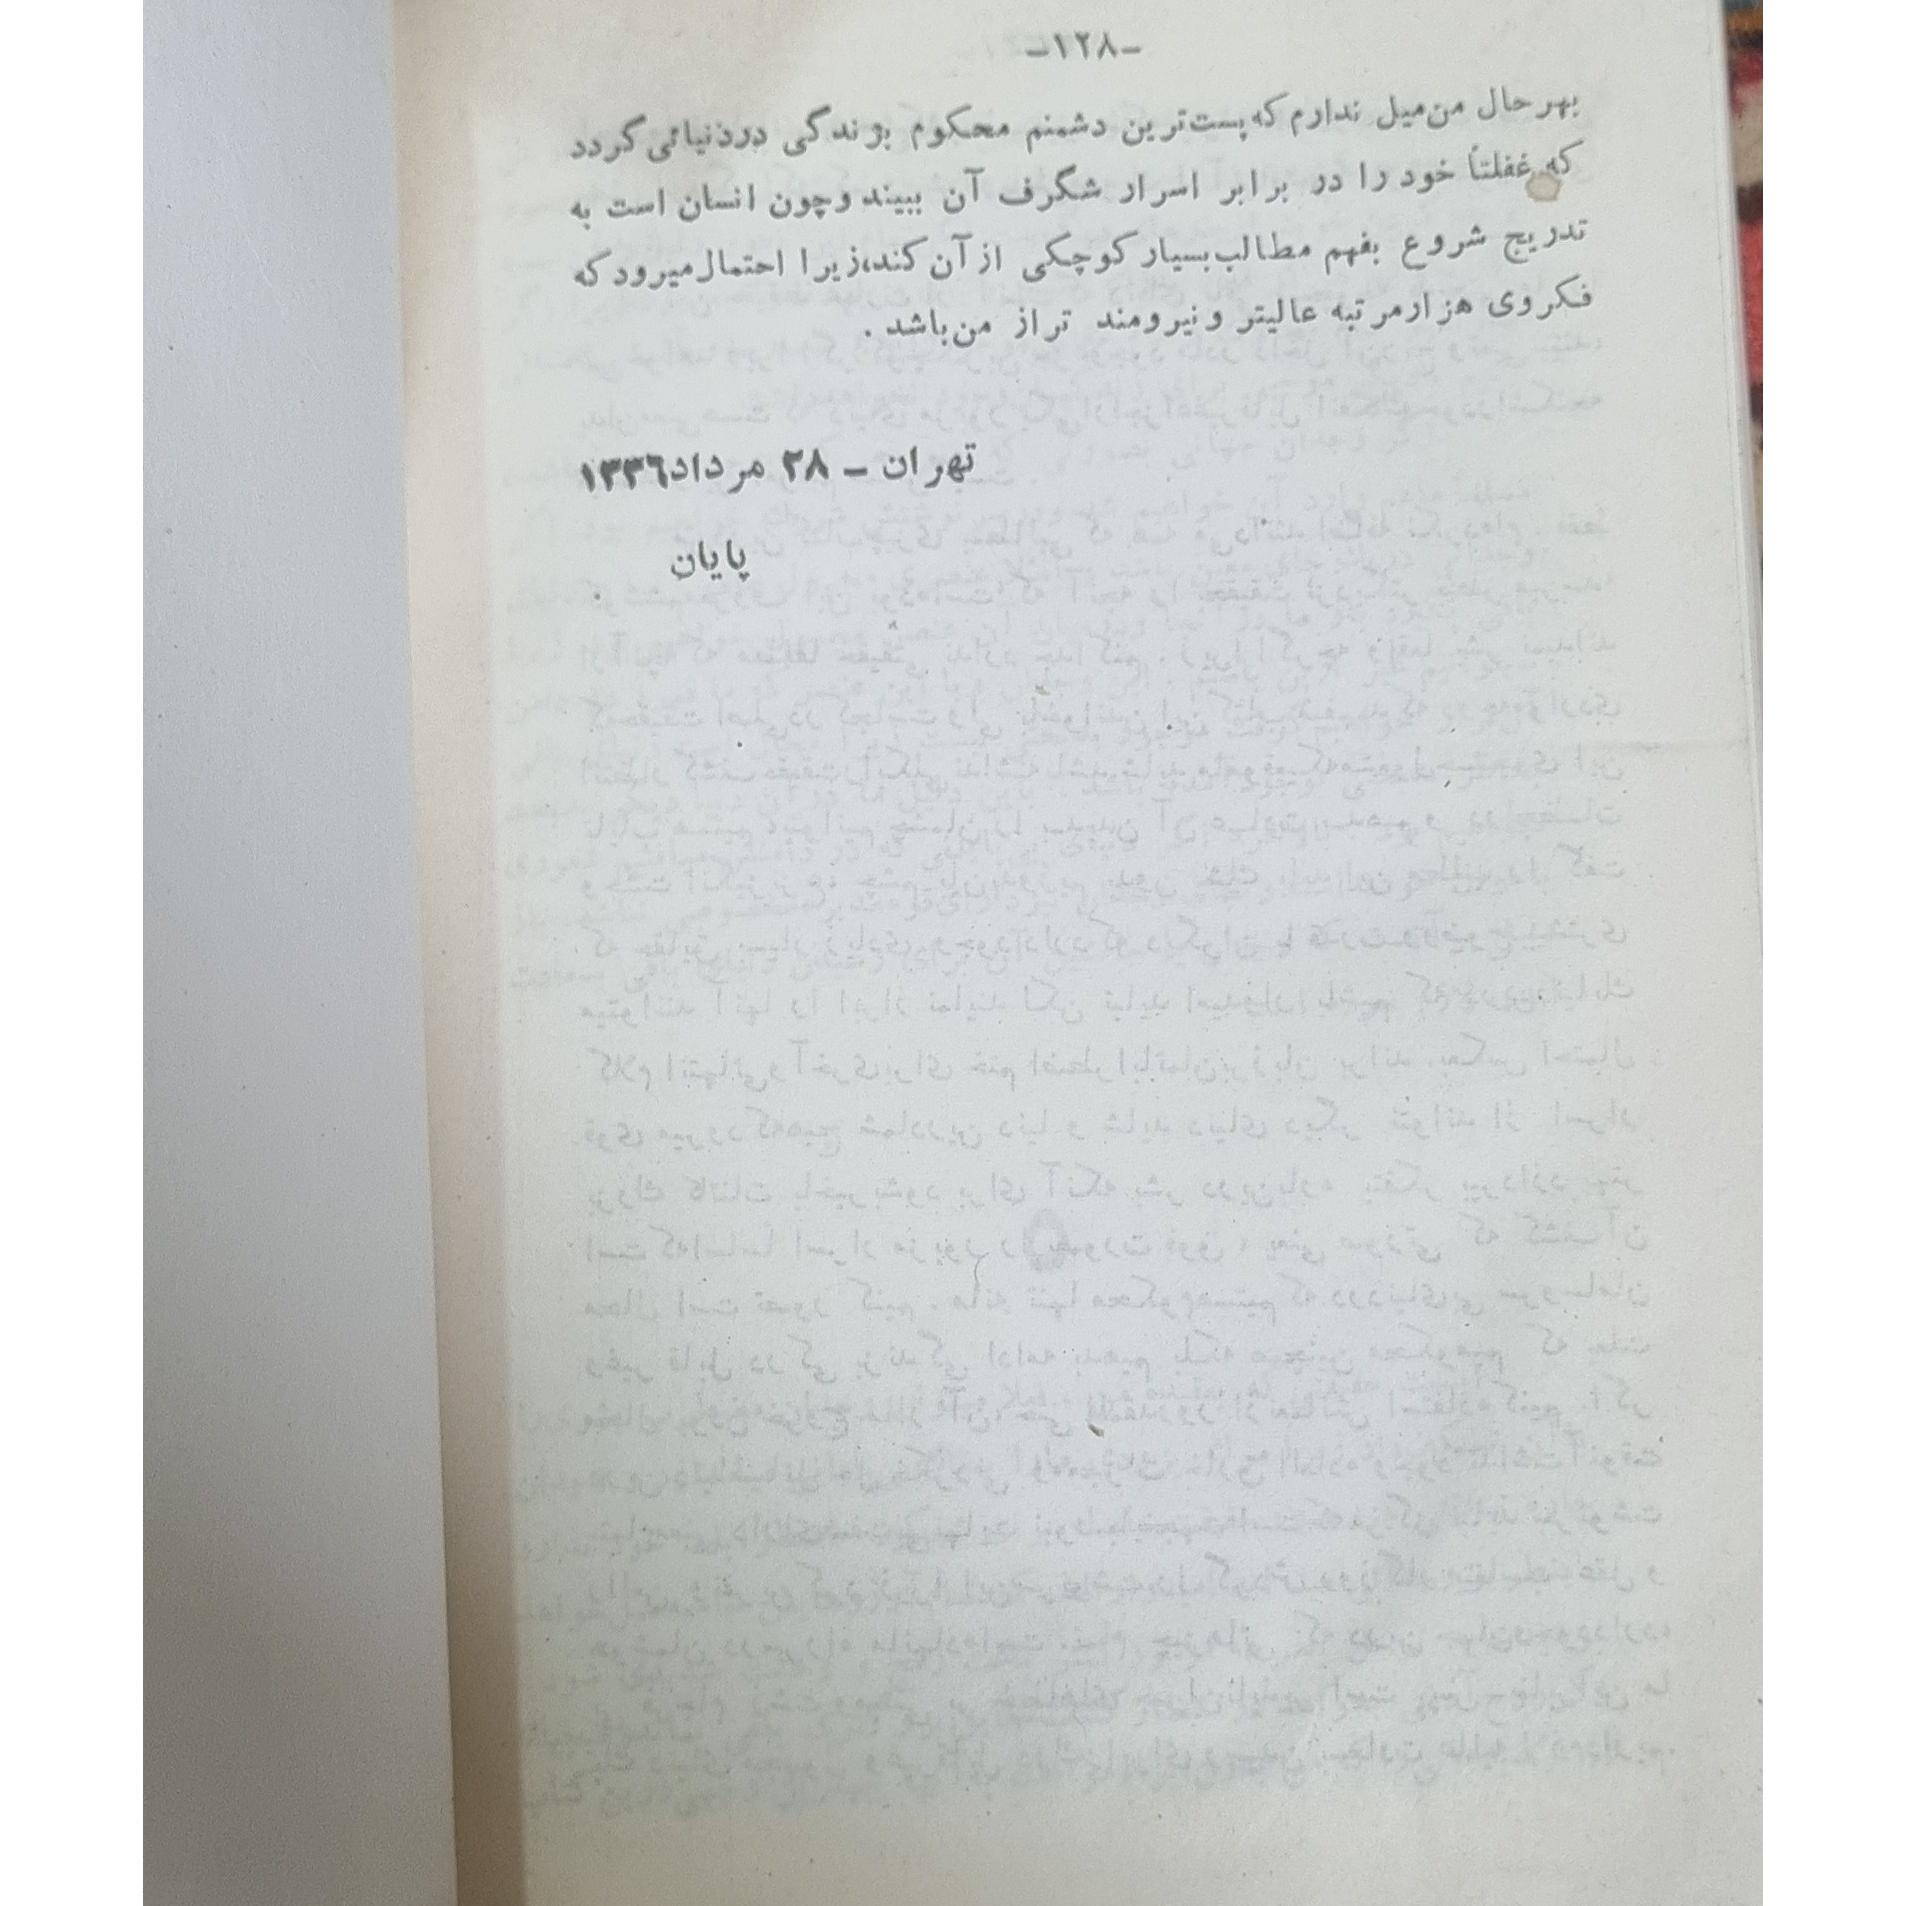 -۱۲۸-
بهرحال من میل ندارم که پست‌ترین دشمنم محکوم بزندگی دردنیائی گردد
که غفلتاً خود را در برابر اسرار شگرف آن ببیند و چون انسان است به
تدریج شروع بفهم مطالب بسیار کوچکی از آن کند، زیرا احتمال میرود که
فکر وی هزار مرتبه عالیتر و نیرومند تر از من باشد .
تهران – ۲۸ مرداد ۱۳۳۶
پایان